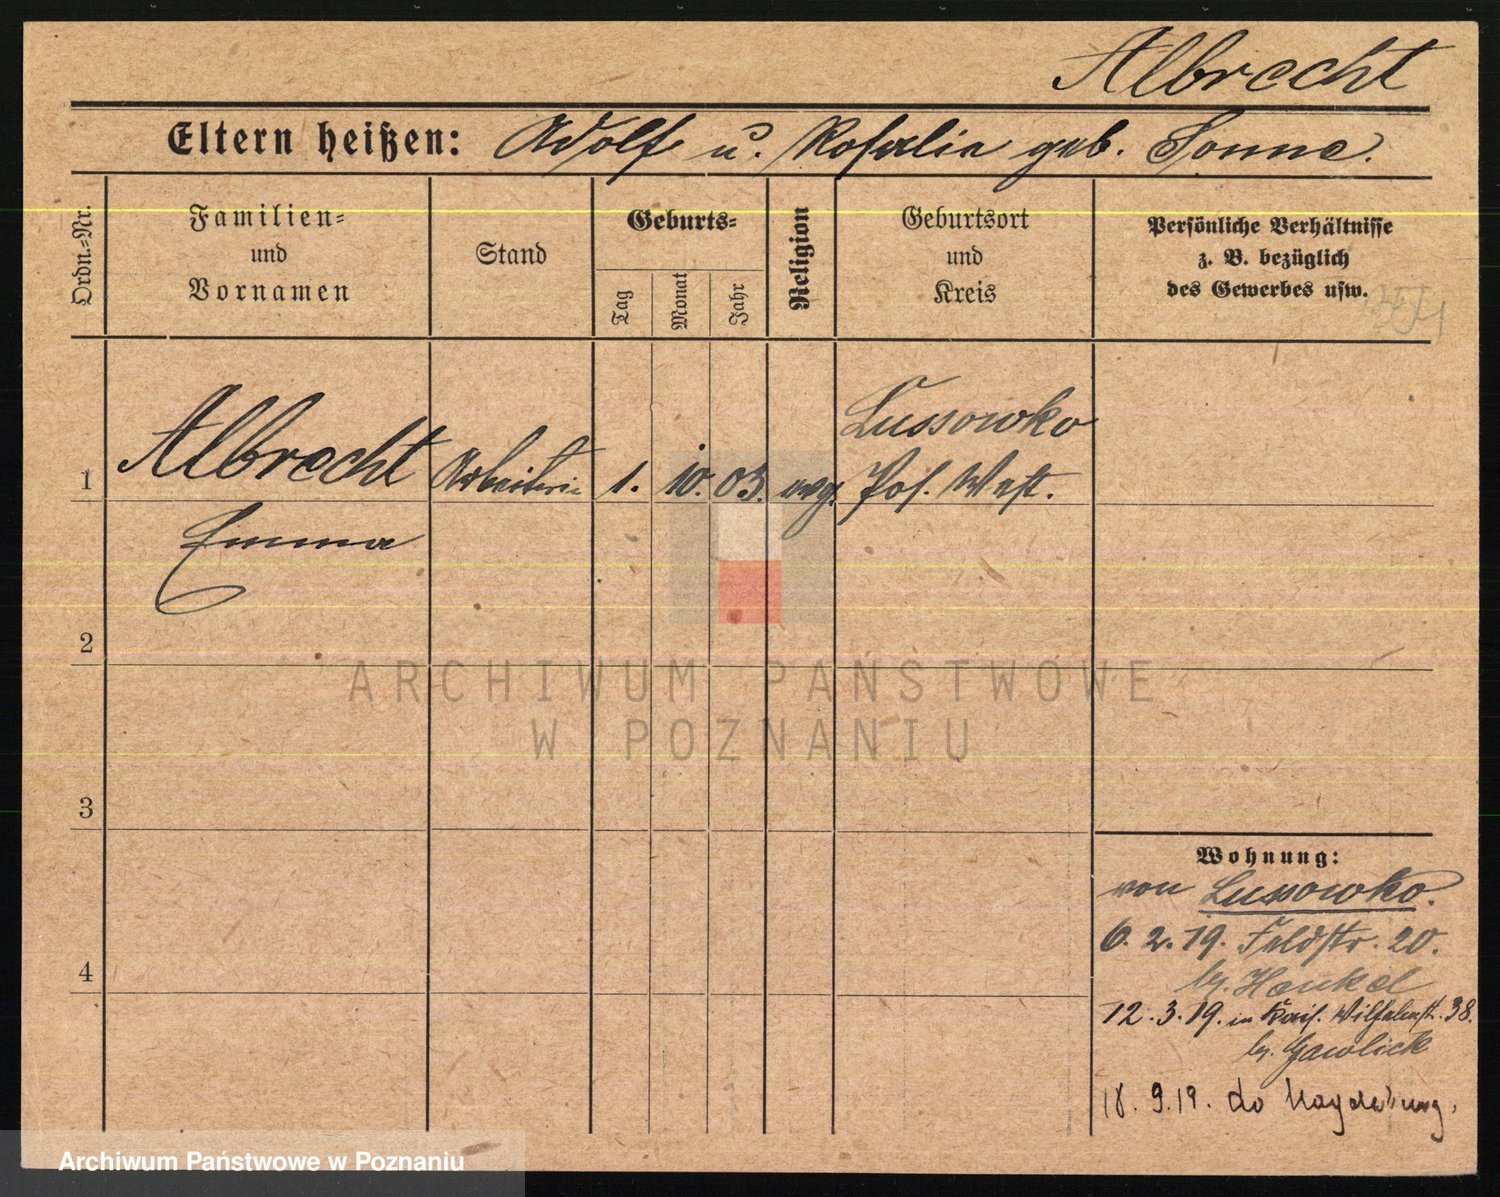 Albrecht
Eltern heißen: Adolf u. Rosalia geb. Sonne.
Ordn.=Nr.
Familien=
und
Vornamen
Stand
Geburts=
Tag
Monat
Jahr
Religion
Geburtsort
und
Kreis
Persönliche Verhältnisse
z. B. bezüglich
des Gewerbes usw.
Lussowko
1 Albrecht Arbeiterin 1. 10. 03. evg. Pos. West.
Emma
2
ARCHIWUM PAŃSTWOWE
W POZNANIU
3
Wohnung:
von Lussowko.
6. 2. 19. Feldstr. 20.
4
b. Henkel
12. 3. 19. in Kais. Wilhelmst. 38.
b. Gawlick
18. 9. 19. do Magdeburg.
Archiwum Państwowe w Poznaniu